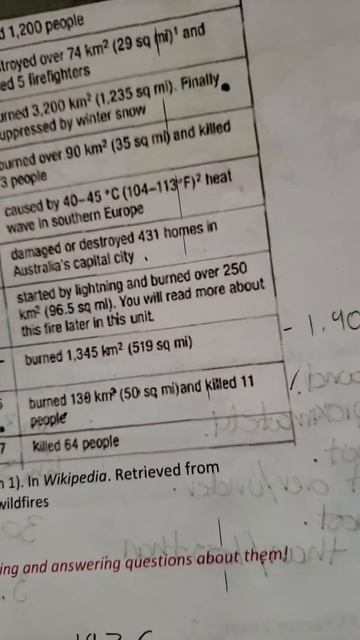 1,200 people
troyed over 74 km² (29 sq mi)¹ and
ed 5 firefighters
urned 3,200 km² (1,235 sq mi). Finally
uppressed by winter snow
burned over 90 km² (35 sq mi) and killed
3 people
caused by 40–45 °C (104–113 °F)² heat
wave in southern Europe
damaged or destroyed 431 homes in
Australia's capital city
started by lightning and burned over 250
km² (96.5 sq mi). You will read more about
this fire later in this unit.
burned 1,345 km² (519 sq mi)
- 1.90
burned 130 km² (50 sq mi)and killed 11
people
7 killed 64 people
1). In Wikipedia. Retrieved from
wildfires
ing and answering questions about them!